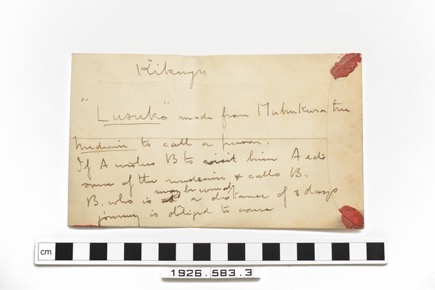 Kikuyu
"Lusuko" made from Mubukura tree
medicin to call a person.
If A wishes B to visit him A eats
some of the medicin & calls B.
B. who is may be away a distance of 3 days
journey is obliged to come
cm
1926.583.3